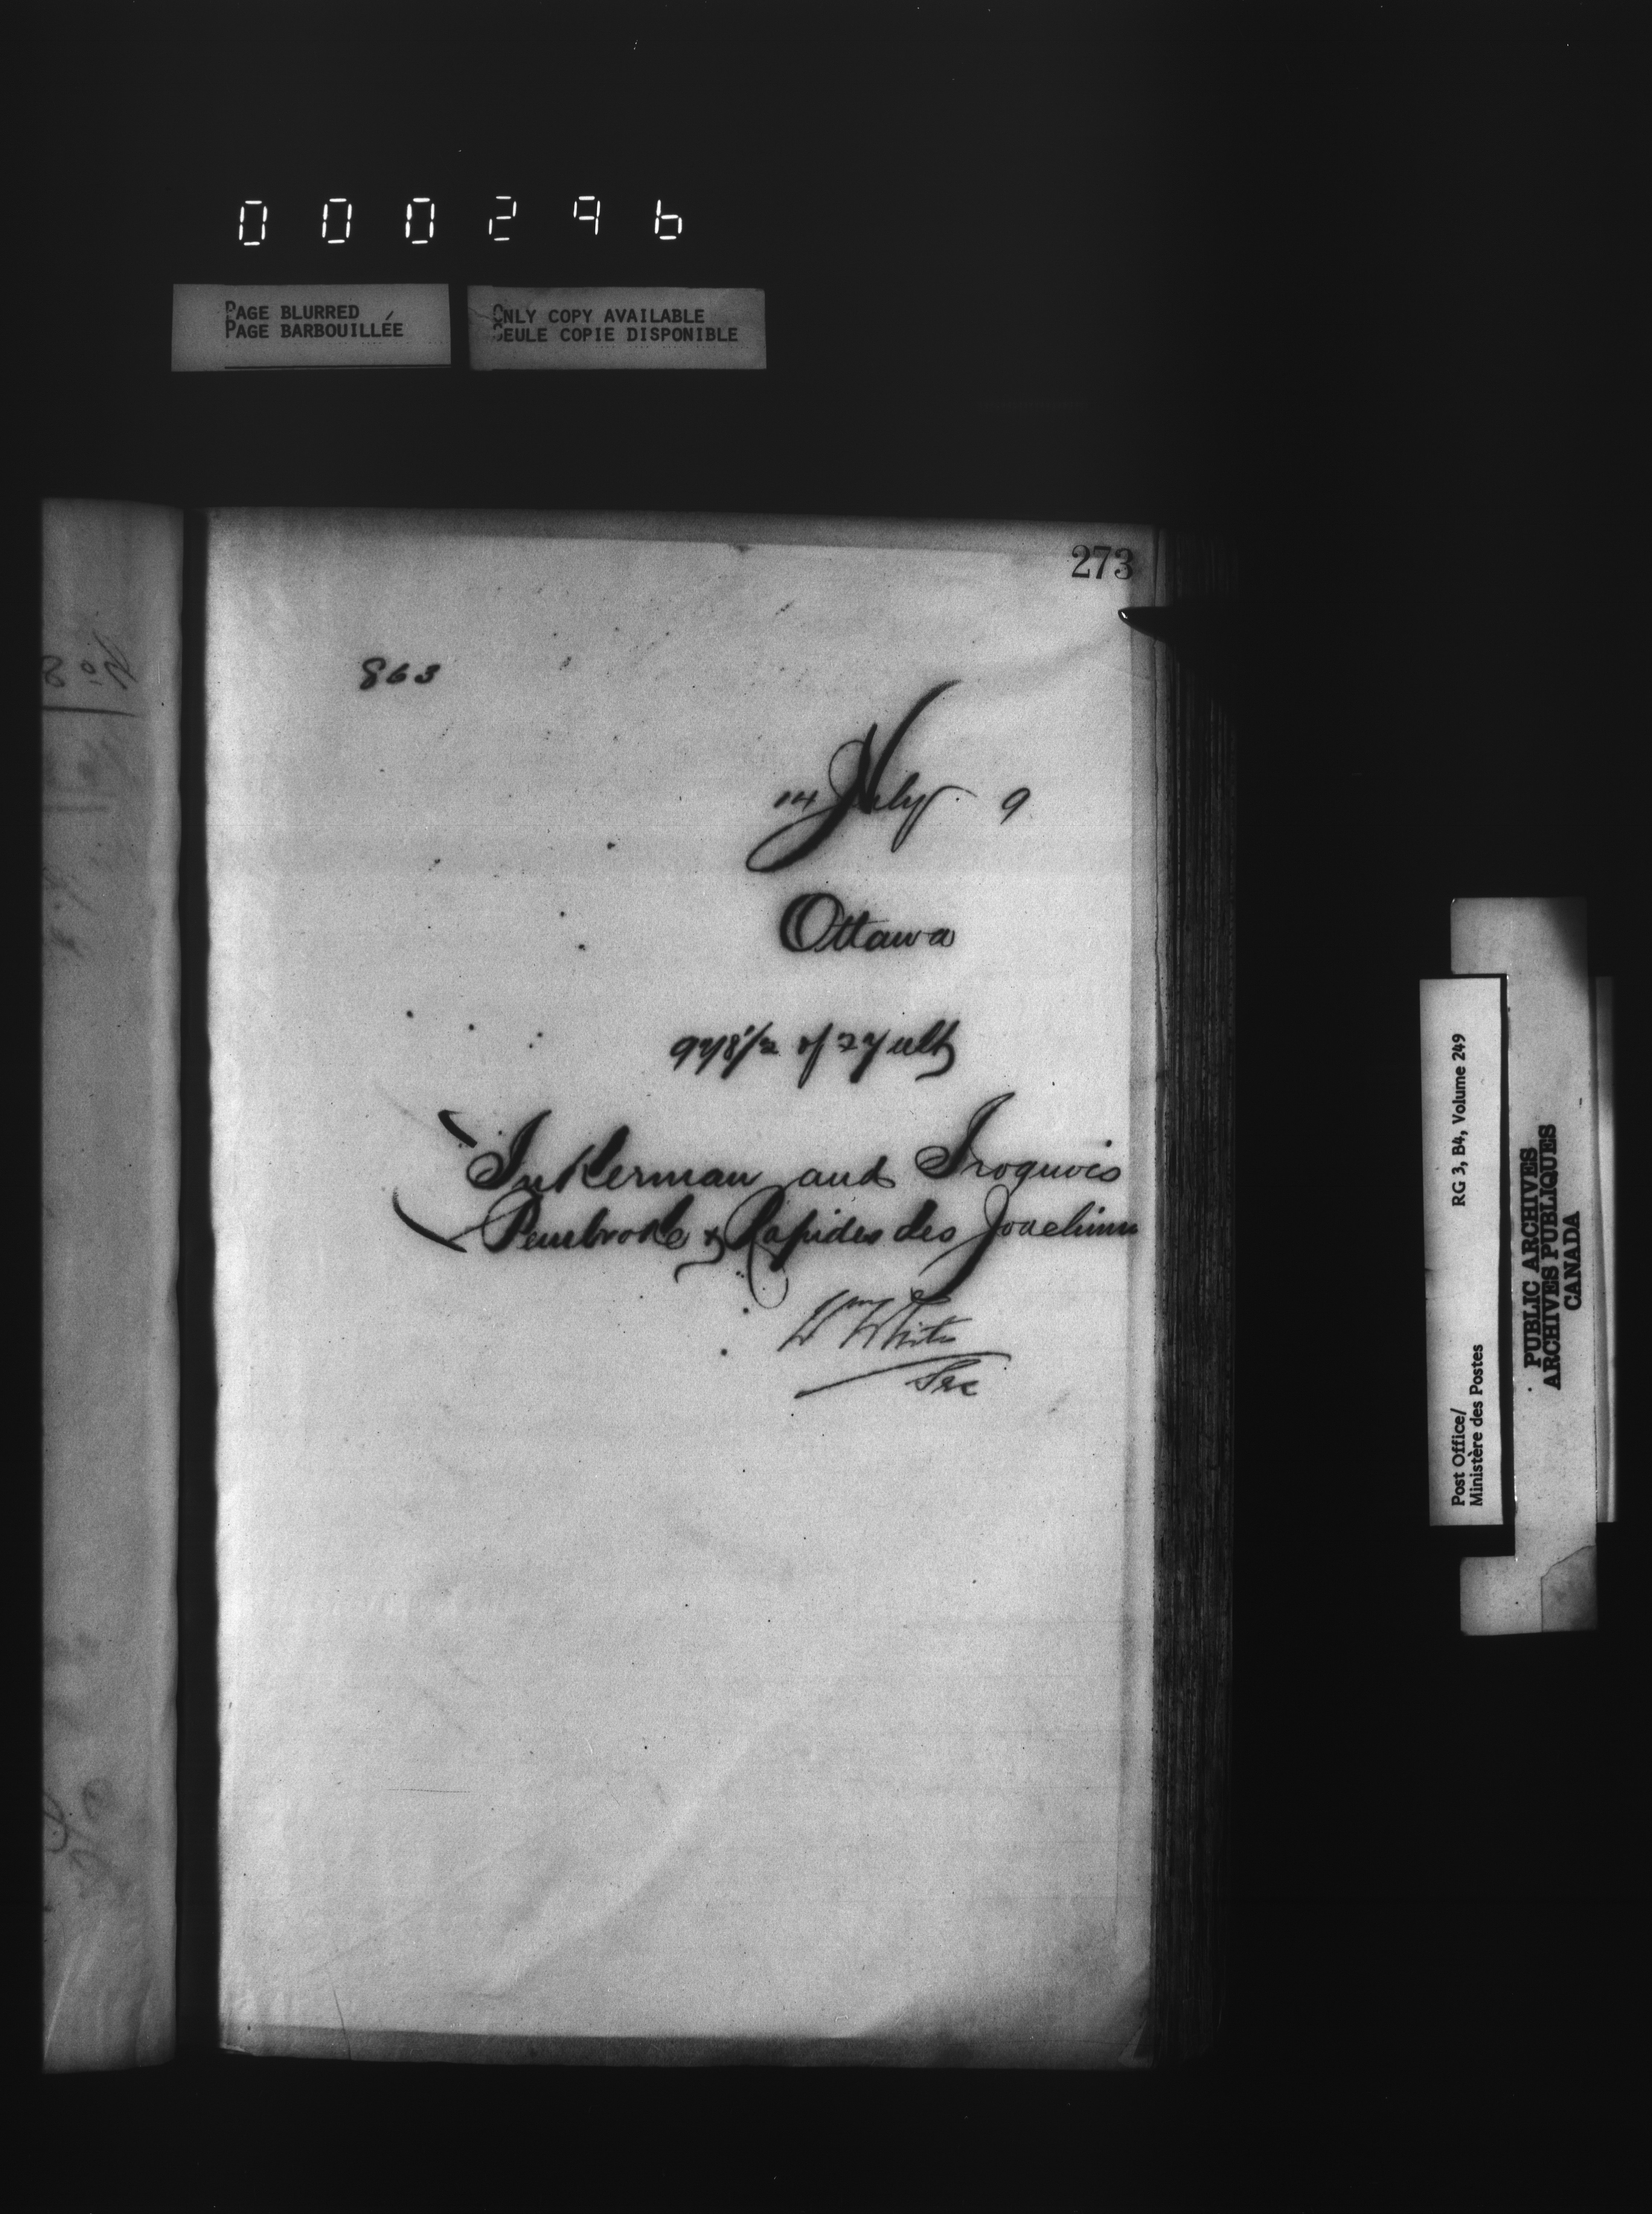 000296
PAGE BLURRED
PAGE BARBOUILLÉE
ONLY COPY AVAILABLE
SEULE COPIE DISPONIBLE
273
863
14 July 9
Ottawa
of 27 ult
Inkerman and Iroquois
Pembroke & Rapides des Joachims
Wm White
Sec
Post Office/ RG 3, B4, Volume 249
Ministère des Postes
PUBLIC ARCHIVES
ARCHIVES PUBLIQUES
CANADA